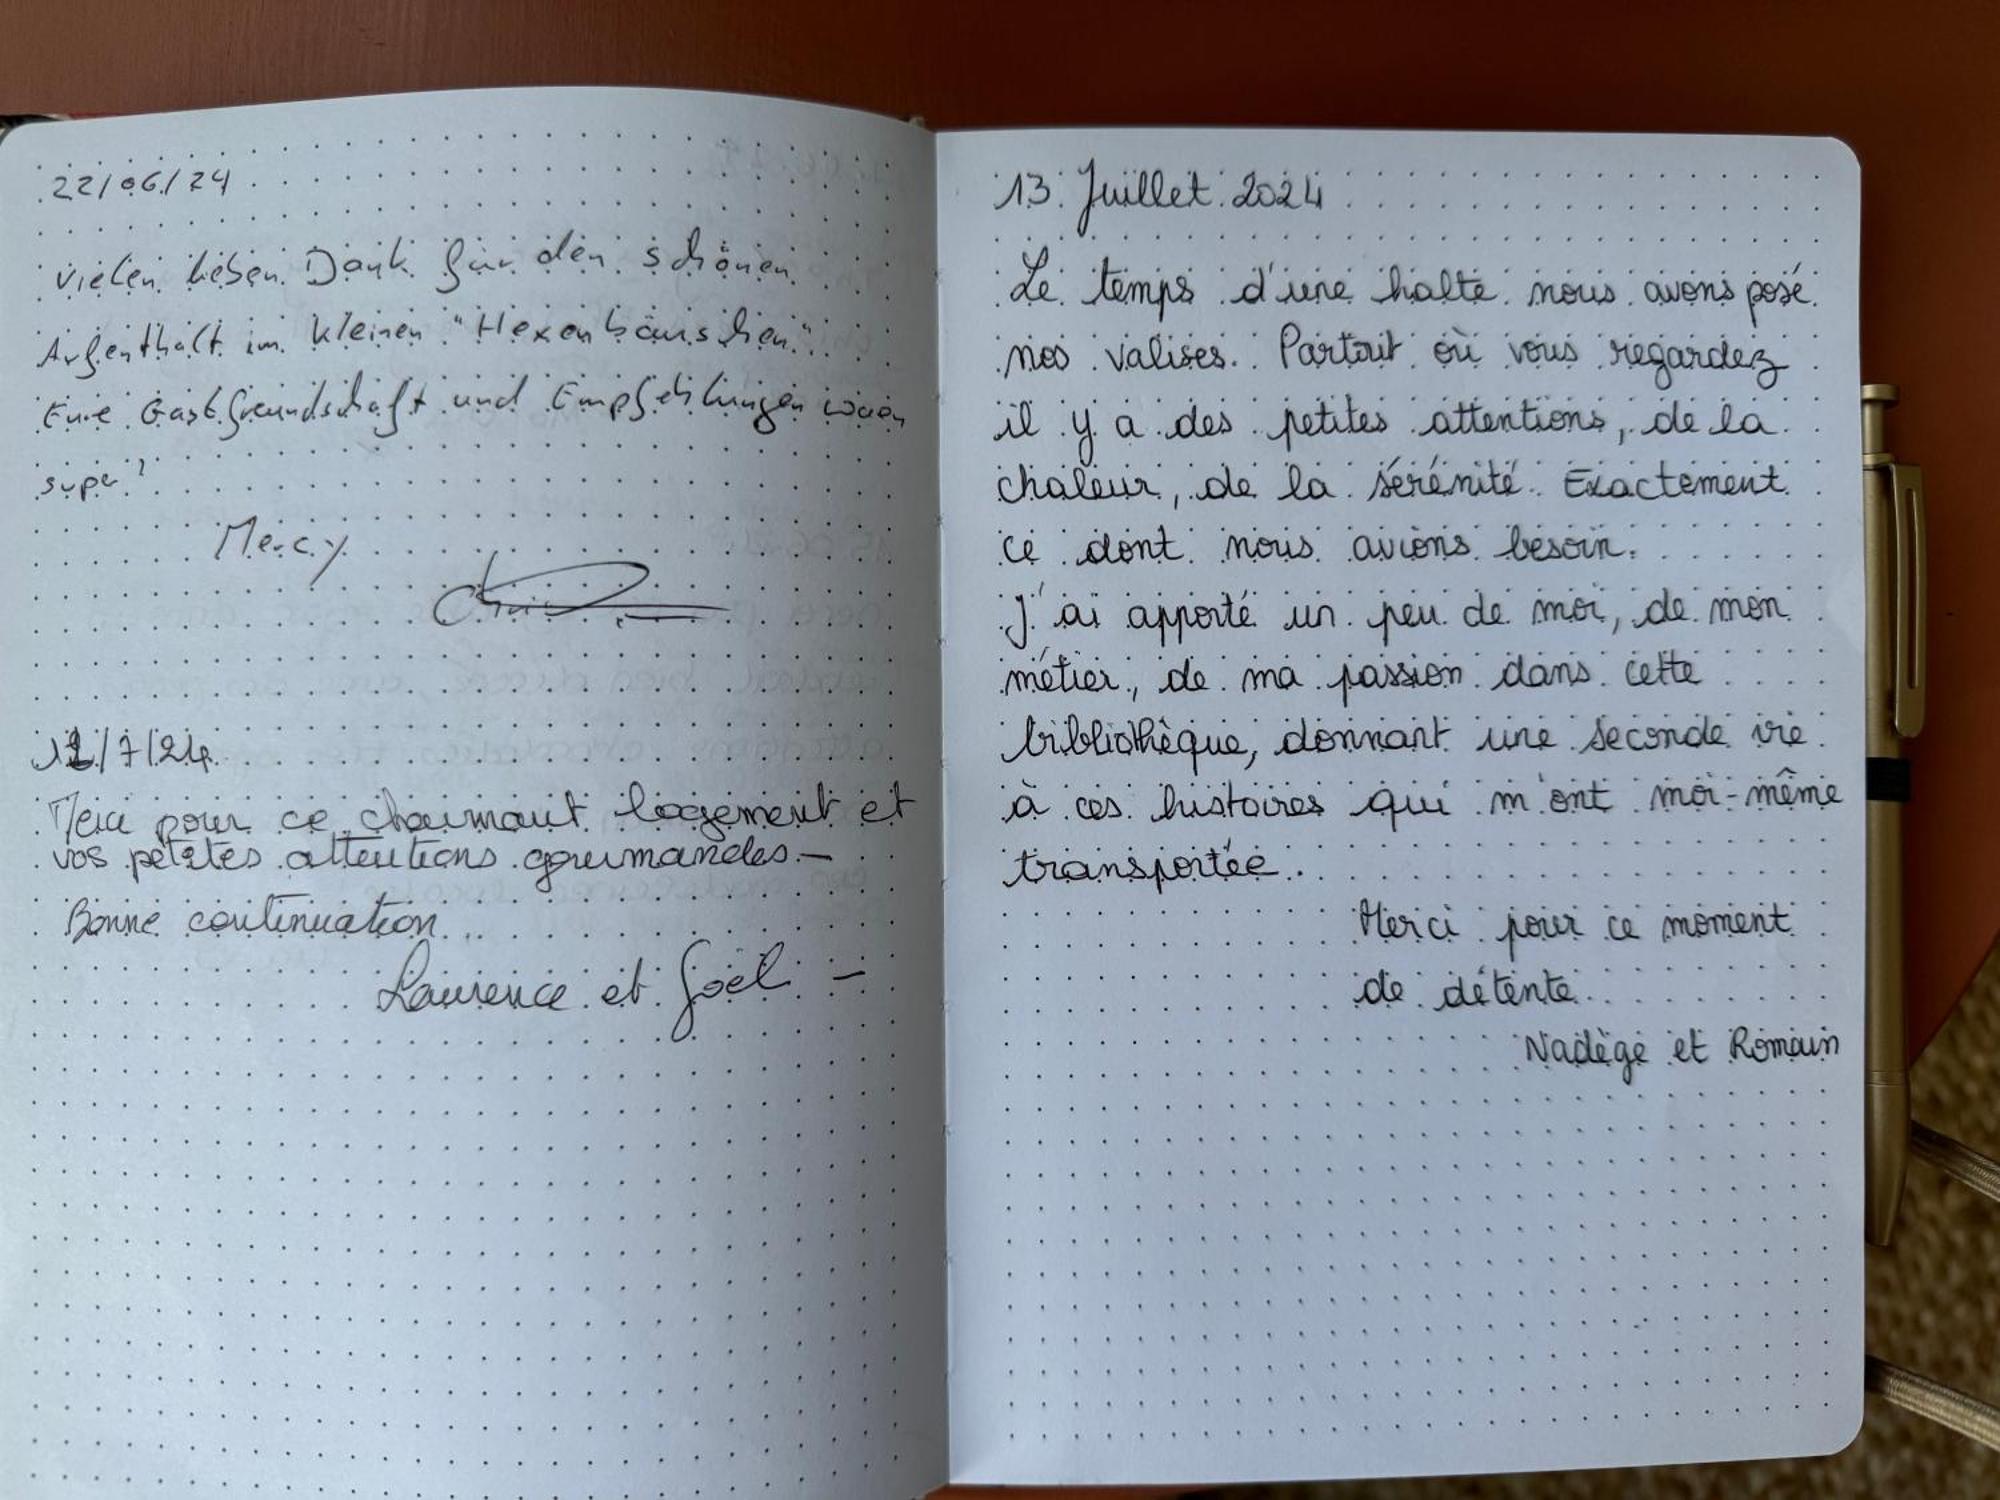 22/06/24
Vielen lieben Dank für den schönen
Aufenthalt im kleinen "Hexenhäuschen".
Eure Gastfreundschaft und Empfehlungen waren
super!
Mercy
11/7/24
Merci pour ce charmant logement et
vos petites attentions gourmandes.-
Bonne continuation..
Laurence et Joël -
13 Juillet 2024
Le temps d'une halte nous avons posé
nos valises. Partout où vous regardez
il y a des petites attentions, de la
chaleur, de la sérénité. Exactement
ce dont nous avions besoin.
J'ai apporté un peu de moi, de mon
métier, de ma passion dans cette
bibliothèque, donnant une seconde vie
à ces histoires qui m'ont moi-même
transportée.
Merci pour ce moment
de détente.
Nadège et Romain